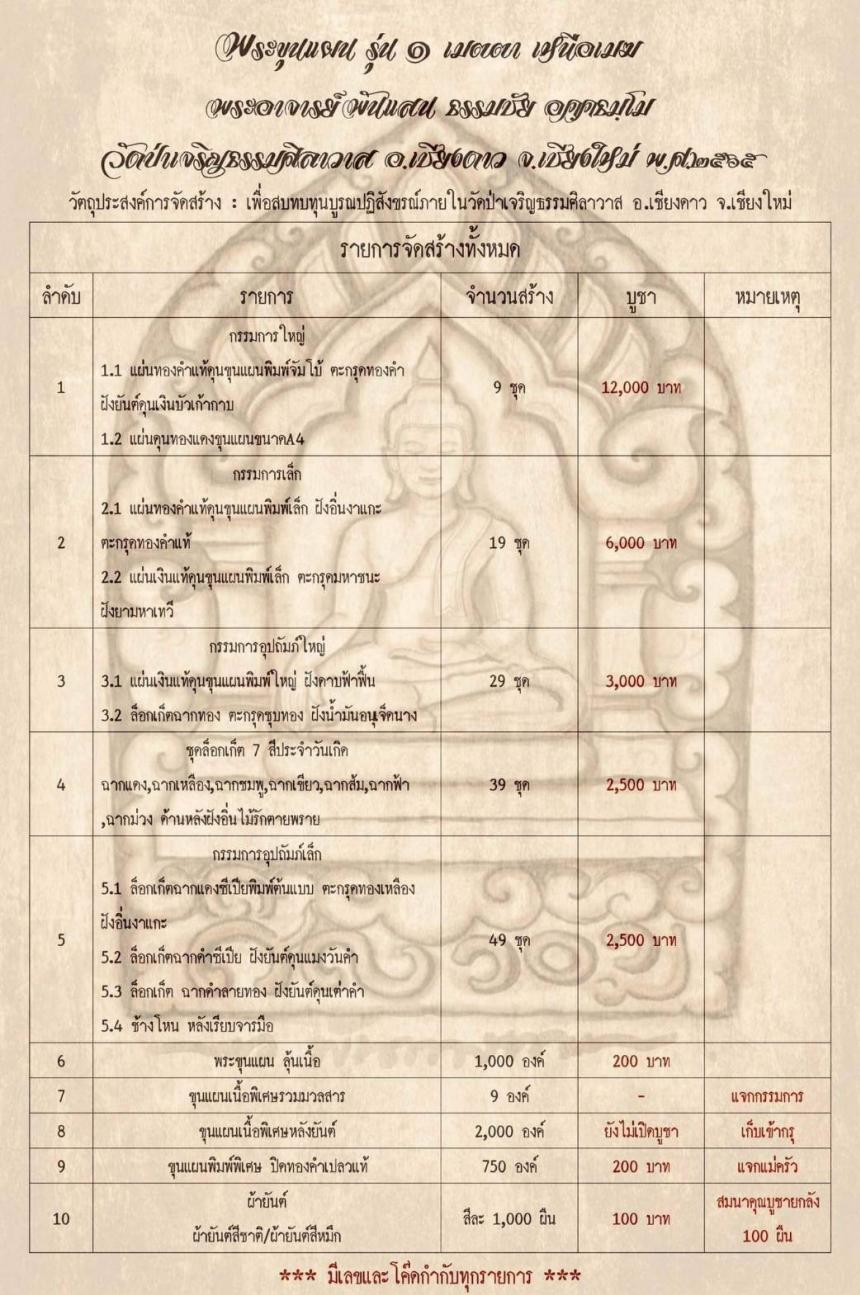 พระขุนแผน รุ่น ๑ เมตตา เหนือเมฆ
พระอาจารย์พันแสน ธรรมชัย อคฺคธมฺโม
วัดป่าเจริญธรรมศิลาวาส อ.เชียงดาว จ.เชียงใหม่ พ.ศ.๒๕๖๕
วัตถุประสงค์การจัดสร้าง : เพื่อสบทบทุนบูรณปฏิสังขรณ์ภายในวัดป่าเจริญธรรมศิลาวาส อ.เชียงดาว จ.เชียงใหม่
รายการจัดสร้างทั้งหมด
ลำดับ รายการ จำนวนสร้าง บูชา หมายเหตุ
กรรมการใหญ่
1.1 แผ่นทองคำแท้ดุนขุนแผนพิมพ์จัมโบ้ ตะกรุดทองคำ
1 9 ชุด 12,000 บาท
ฝังยันต์ดุนเงินบัวเก้ากาบ
1.2 แผ่นดุนทองแดงขุนแผนขนาดA4
กรรมการเล็ก
2.1 แผ่นทองคำแท้ดุนขุนแผนพิมพ์เล็ก ฝังอิ่นงาแกะ
2 ตะกรุดทองคำแท้ 19 ชุด 6,000 บาท
2.2 แผ่นเงินแท้ดุนขุนแผนพิมพ์เล็ก ตะกรุดมหาชนะ
ฝังยามหาเทวี
กรรมการอุปถัมภ์ใหญ่
3 3.1 แผ่นเงินแท้ดุนขุนแผนพิมพ์ใหญ่ ฝังดาบฟ้าฟื้น 29 ชุด 3,000 บาท
3.2 ล็อกเก็ตฉากทอง ตะกรุดชุบทอง ฝังน้ำมันอนุจืดนาง
ชุดล็อกเก็ต 7 สีประจำวันเกิด
4 ฉากแดง,ฉากเหลือง,ฉากชมพู,ฉากเขียว,ฉากส้ม,ฉากฟ้า 39 ชุด 2,500 บาท
,ฉากม่วง ด้านหลังฝังอิ่นไม้รักตายพราย
กรรมการอุปถัมภ์เล็ก
5.1 ล็อกเก็ตฉากแดงซีเปียพิมพ์ต้นแบบ ตะกรุดทองเหลือง
ฝังอิ่นงาแกะ
5 49 ชุด 2,500 บาท
5.2 ล็อกเก็ตฉากดำซีเปีย ฝังยันต์ดุนแมงวันคำ
5.3 ล็อกเก็ต ฉากดำลายทอง ฝังยันต์ดุนเต่าคำ
5.4 ช้างโหน หลังเรียบจารมือ
6 พระขุนแผน ลุ้นเนื้อ 1,000 องค์ 200 บาท
7 ขุนแผนเนื้อพิเศษรวมมวลสาร 9 องค์ - แจกกรรมการ
8 ขุนแผนเนื้อพิเศษหลังยันต์ 2,000 องค์ ยังไม่เปิดบูชา เก็บเข้ากรุ
9 ขุนแผนพิมพ์พิเศษ ปิดทองคำเปลวแท้ 750 องค์ 200 บาท แจกแม่ครัว
ผ้ายันต์ สมนาคุณบูชายกลัง
10 สีละ 1,000 ผืน 100 บาท
ผ้ายันต์สีชาติ/ผ้ายันต์สีหมึก 100 ผืน
*** มีเลขและโค๊ดกำกับทุกรายการ ***